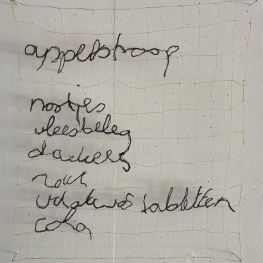 appelstroop
nootjes
vleesbeleg
crackers
vaatwas tabletten
cola